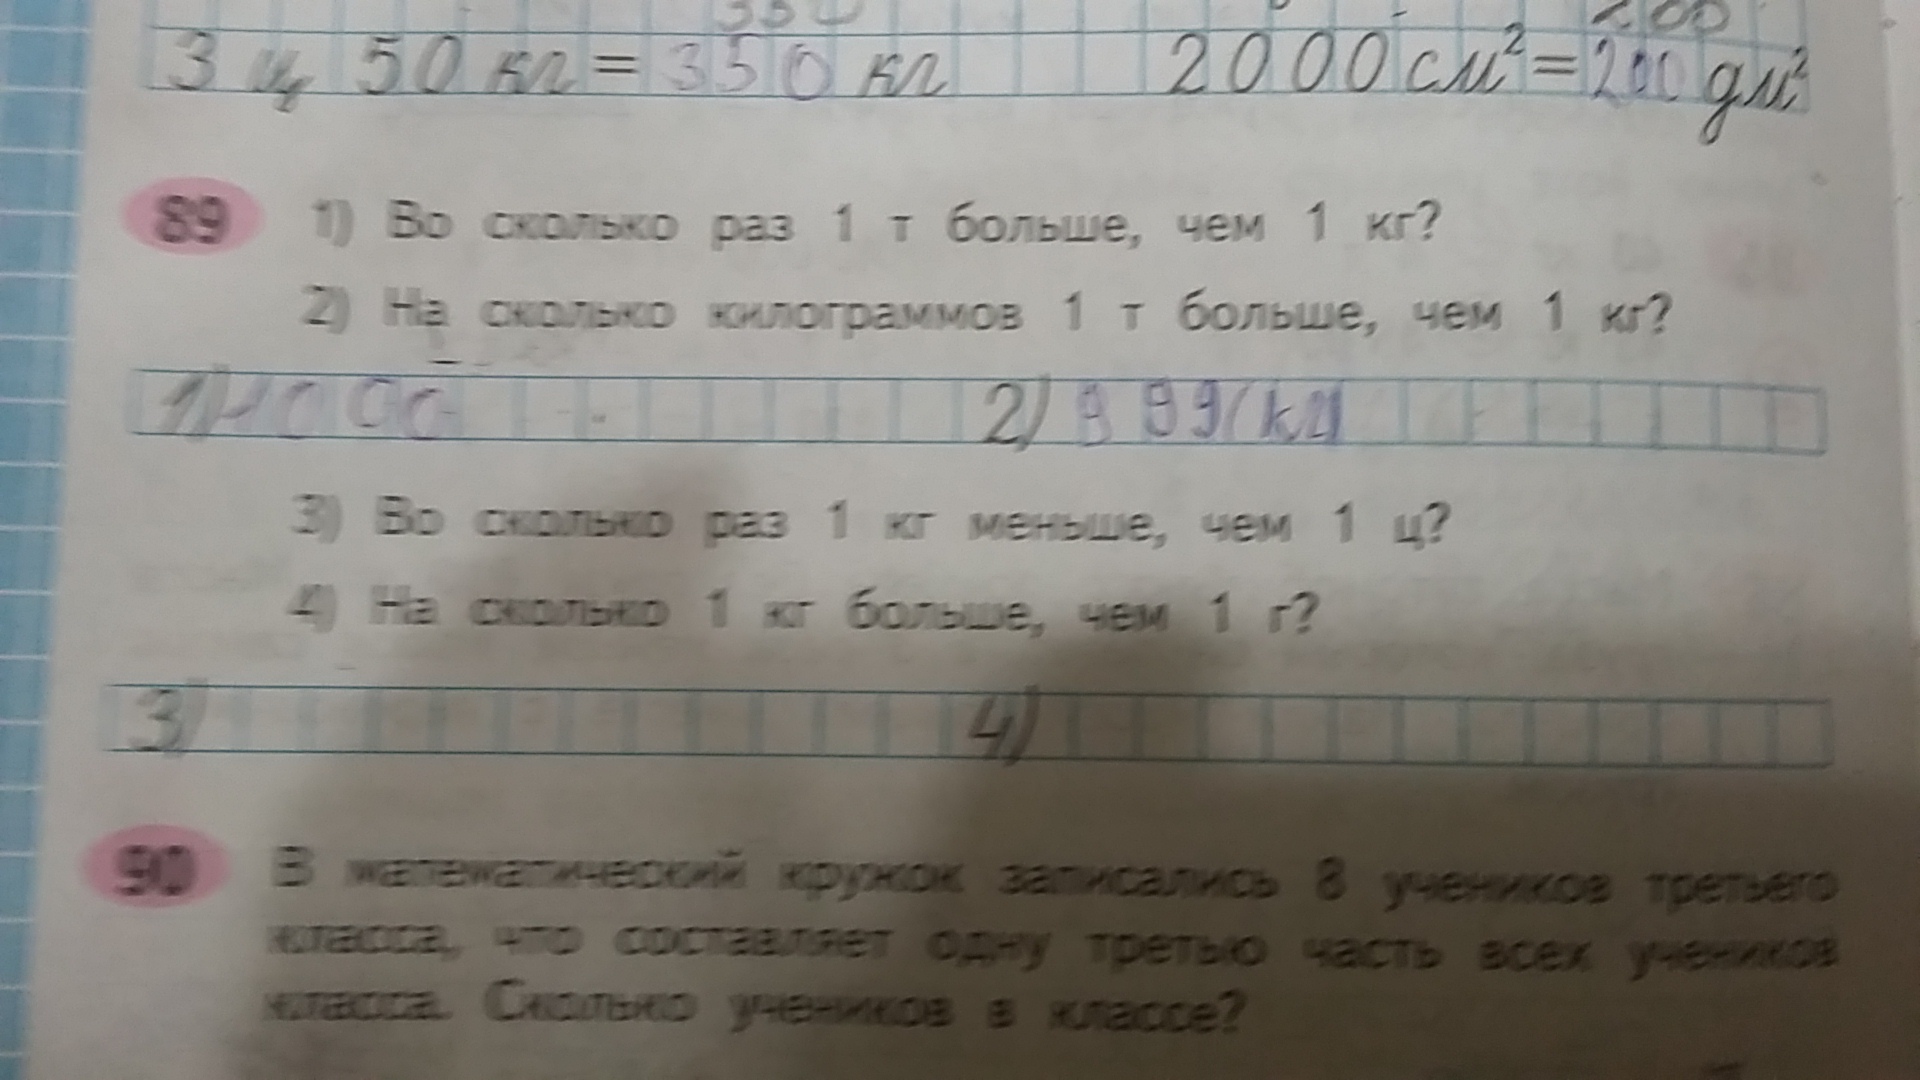 3 ц 50 кг = 350 кг 2000 см² = 200 дм²
89 1) Во сколько раз 1 т больше, чем 1 кг?
2) На сколько килограммов 1 т больше, чем 1 кг?
1) 1000 2) 999(кг)
3) Во сколько раз 1 кг меньше, чем 1 ц?
4) На сколько 1 кг больше, чем 1 г?
3) 4)
90 В математический кружок записались 8 учеников третьего
класса, что составляет одну третью часть всех учеников
класса. Сколько учеников в классе?